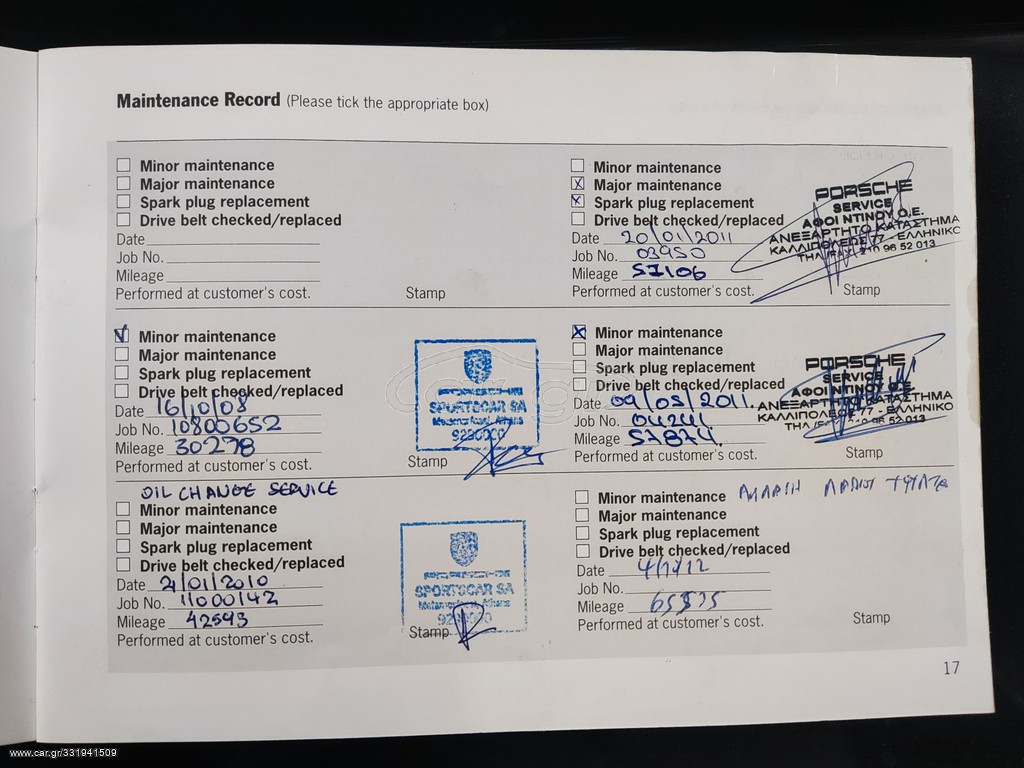 Maintenance Record (Please tick the appropriate box)
Minor maintenance
Major maintenance
Spark plug replacement
Drive belt checked/replaced
Date
Job No.
Mileage
Performed at customer's cost.
Stamp
Minor maintenance
Major maintenance
Spark plug replacement
Drive belt checked/replaced
Date 16/10/08
Job No. 10800652
Mileage 30278
Performed at customer's cost.
Stamp
SPORTSCAR SA
OIL CHANGE SERVICE
Minor maintenance
Major maintenance
Spark plug replacement
Drive belt checked/replaced
Date 21/01/2010
Job No. 11000142
Mileage 42593
Performed at customer's cost.
Stamp
SPORTSCAR SA
Minor maintenance
Major maintenance
Spark plug replacement
Drive belt checked/replaced
Date 20/01/2011
Job No. 03950
Mileage 57106
Performed at customer's cost.
Stamp
PORSCHE
SERVICE
ΑΦΟΙ ΝΤΙΝΟΥ Ο.Ε.
ΑΝΕΞΑΡΤΗΤΟ ΚΑΤΑΣΤΗΜΑ
ΚΑΛΛΙΠΟΛΕΩΣ 77 - ΕΛΛΗΝΙΚΟ
ΤΗΛ/FAX: 210 96 52 013
Minor maintenance
Major maintenance
Spark plug replacement
Drive belt checked/replaced
Date 09/05/2011.
Job No. 04241
Mileage 57874
Performed at customer's cost.
Stamp
PORSCHE
SERVICE
ΑΦΟΙ ΝΤΙΝΟΥ Ο.Ε.
ΑΝΕΞΑΡΤΗΤΟ ΚΑΤΑΣΤΗΜΑ
ΚΑΛΛΙΠΟΛΕΩΣ 77 - ΕΛΛΗΝΙΚΟ
ΤΗΛ/FAX: 210 96 52 013
Minor maintenance
Major maintenance
Spark plug replacement
Drive belt checked/replaced
Date
Job No.
Mileage
Performed at customer's cost.
Stamp
17
www.car.gr/331941509